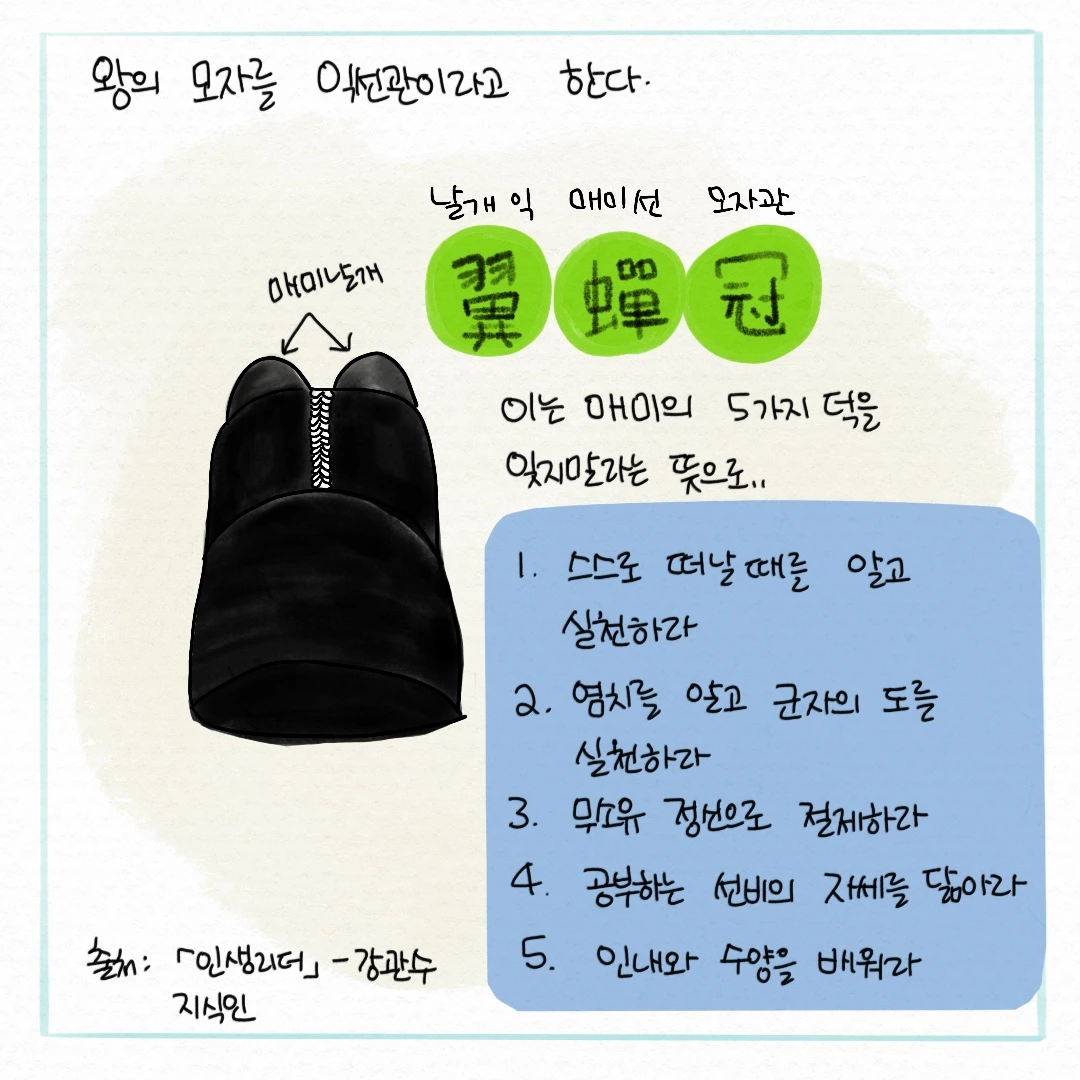 왕의 모자를 익선관이라고 한다.
날개 익 매미선 모자관
翼 蟬 冠
매미날개
이는 매미의 5가지 덕을
잊지말라는 뜻으로..
1. 스스로 떠날 때를 알고
실천하라
2. 염치를 알고 군자의 도를
실천하라
3. 무소유 정신으로 절제하라
4. 공부하는 선비의 자세를 닮아라
5. 인내와 수양을 배워라
출처: 「인생리더」 - 강관수
지식인